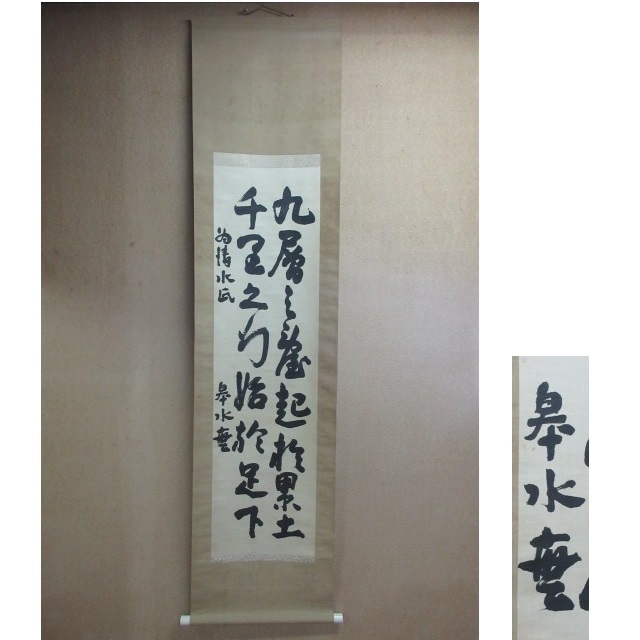 九層之臺起於累土
千里之行始於足下
為清水氏
皐水
皐水